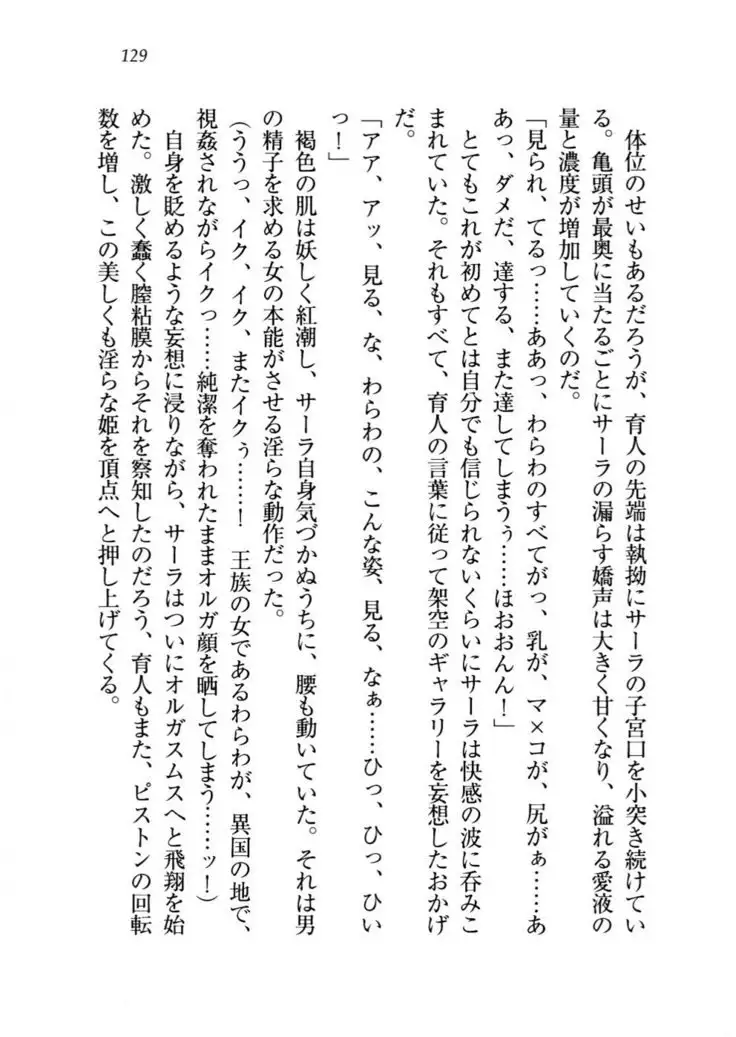 129
　体位のせいもあるだろうが、育人の先端は執拗にサーラの子宮口を小突き続けてい
る。亀頭が最奥に当たるごとにサーラの漏らす嬌声は大きく甘くなり、溢れる愛液の
量と濃度が増加していくのだ。
「見られ、てるっ……ああっ、わらわのすべてがっ、乳が、マ×コが、尻がぁ……あ
あっ、ダメだ、達する、また達してしまうぅ……ほおおんん！」
　とてもこれが初めてとは自分でも信じられないくらいにサーラは快感の波に呑みこ
まれていた。それもすべて、育人の言葉に従って架空のギャラリーを妄想したおかげ
だ。
「アア、アッ、見る、な、わらわの、こんな姿、見る、なぁ……ひっ、ひっ、ひい
っ！」
　褐色の肌は妖しく紅潮し、サーラ自身気づかぬうちに、腰も動いていた。それは男
の精子を求める女の本能がさせる淫らな動作だった。
（ううっ、イク、イク、またイクぅ……！　王族の女であるわらわが、異国の地で、
視姦されながらイクっ……純潔を奪われたままオルガ顔を晒してしまう……ッ！）
　自身を貶めるような妄想に浸りながら、サーラはついにオルガスムスへと飛翔を始
めた。激しく蠢く膣粘膜からそれを察知したのだろう、育人もまた、ピストンの回転
数を増し、この美しくも淫らな姫を頂点へと押し上げてくる。